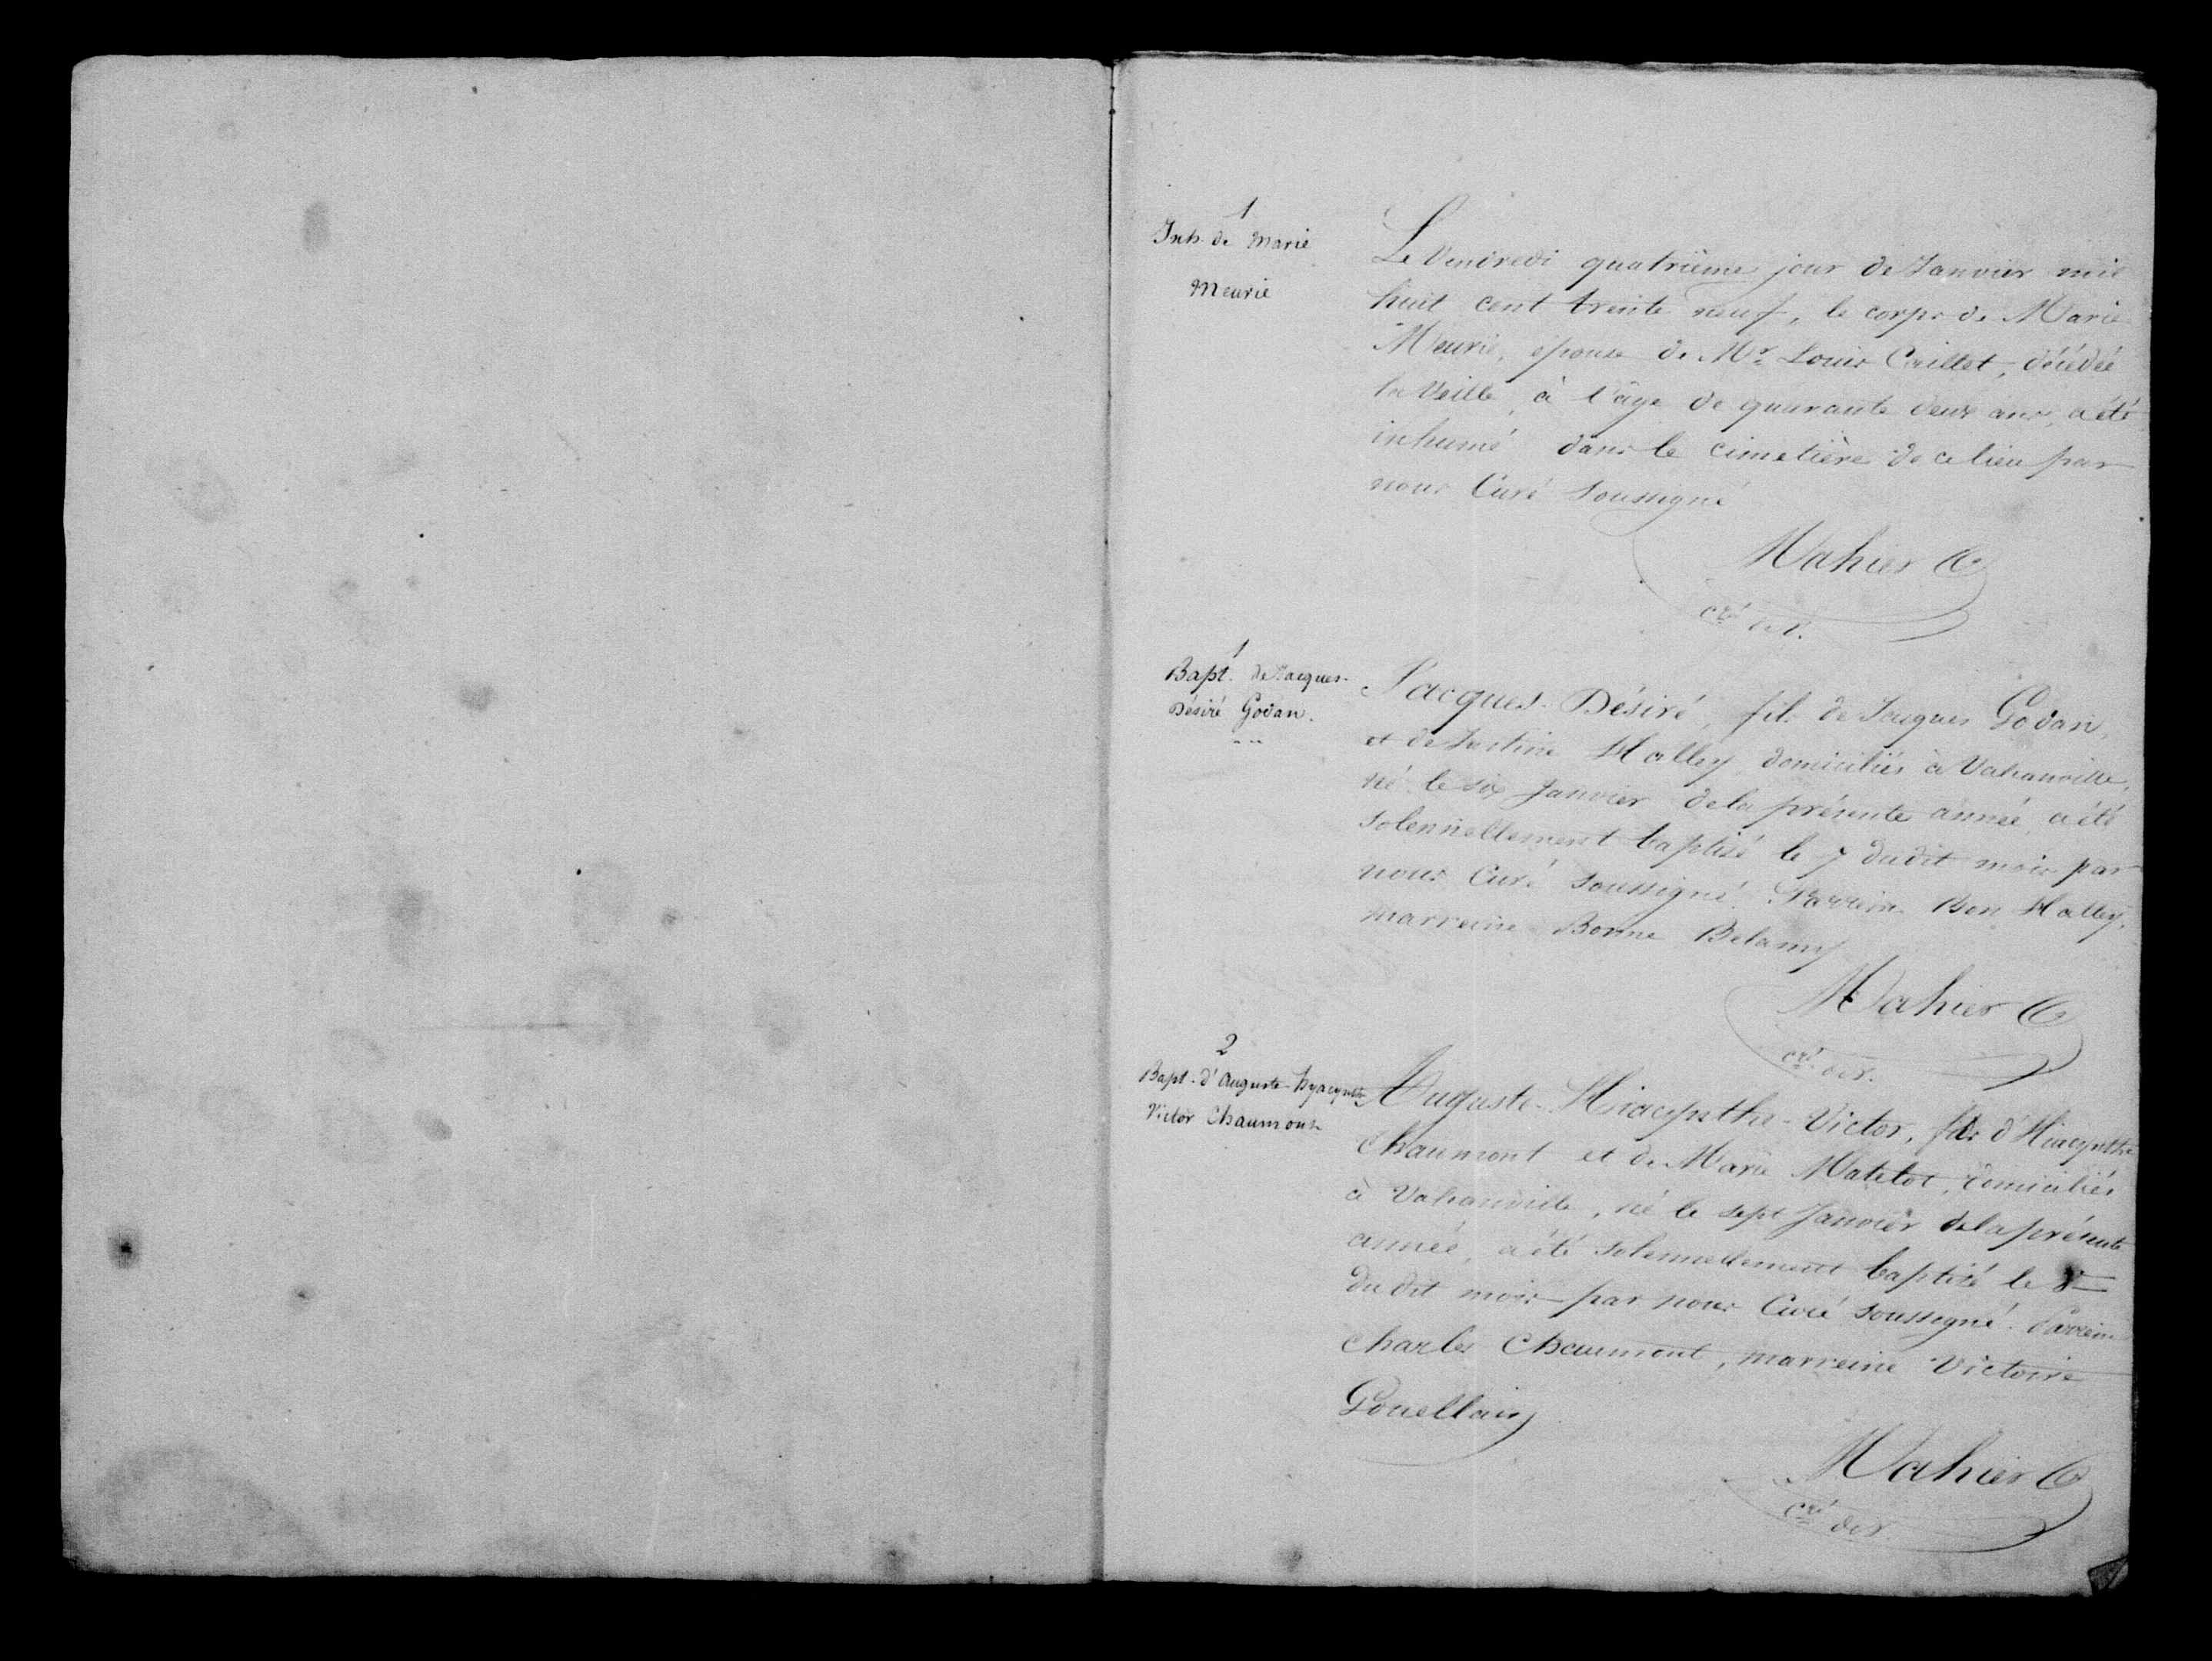 1
Inh. de Marie
Meurie
Le Vendredi quatrième jour de Janvier mil
huit cent trente neuf, le corps de Marie
Meurie, épouse de Mr Louis Caillet, décédée
la Veille, à l'âge de quarante deux ans, a été
inhumé dans le cimetière de ce lieu par
nous Curé soussigné
Mahier
cré de V.
1
Bapt. de Jacques-
Désiré Godan.
Jacques-Désiré, fils de Jacques Godan,
et de Justine Halley domiciliés à Vahanville,
né le six Janvier de la présente année a été
solennellement baptisé le 7 dudit mois par
nous Curé soussigné. Parrein Bon Halley,
marreine Bonne Belamy
Mahier
cré de V.
2
Bapt. d'Auguste-hyacynthe
Victor Chaumont
Auguste-Hiacynthe-Victor, fils d'Hiacynthe
Chaumont et de Marie Matelot, domiciliés
à Vahanville, né le sept Janvier de la présente
année, a été solennellement baptisé le 8
du dit mois par nous Curé soussigné. Parrein
Charles Chaumont, marreine Victoire
Gouellain
Mahier
cré de V.